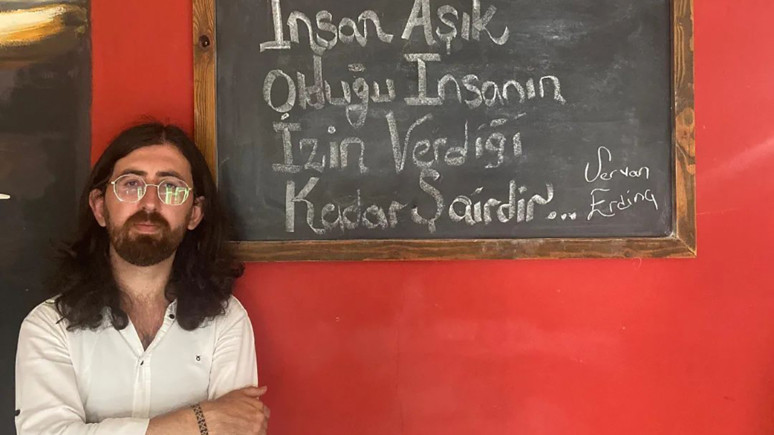 İnsan Aşık
Olduğu İnsanın
İzin Verdiği
Kadar Şairdir...
Servan
Erdinç